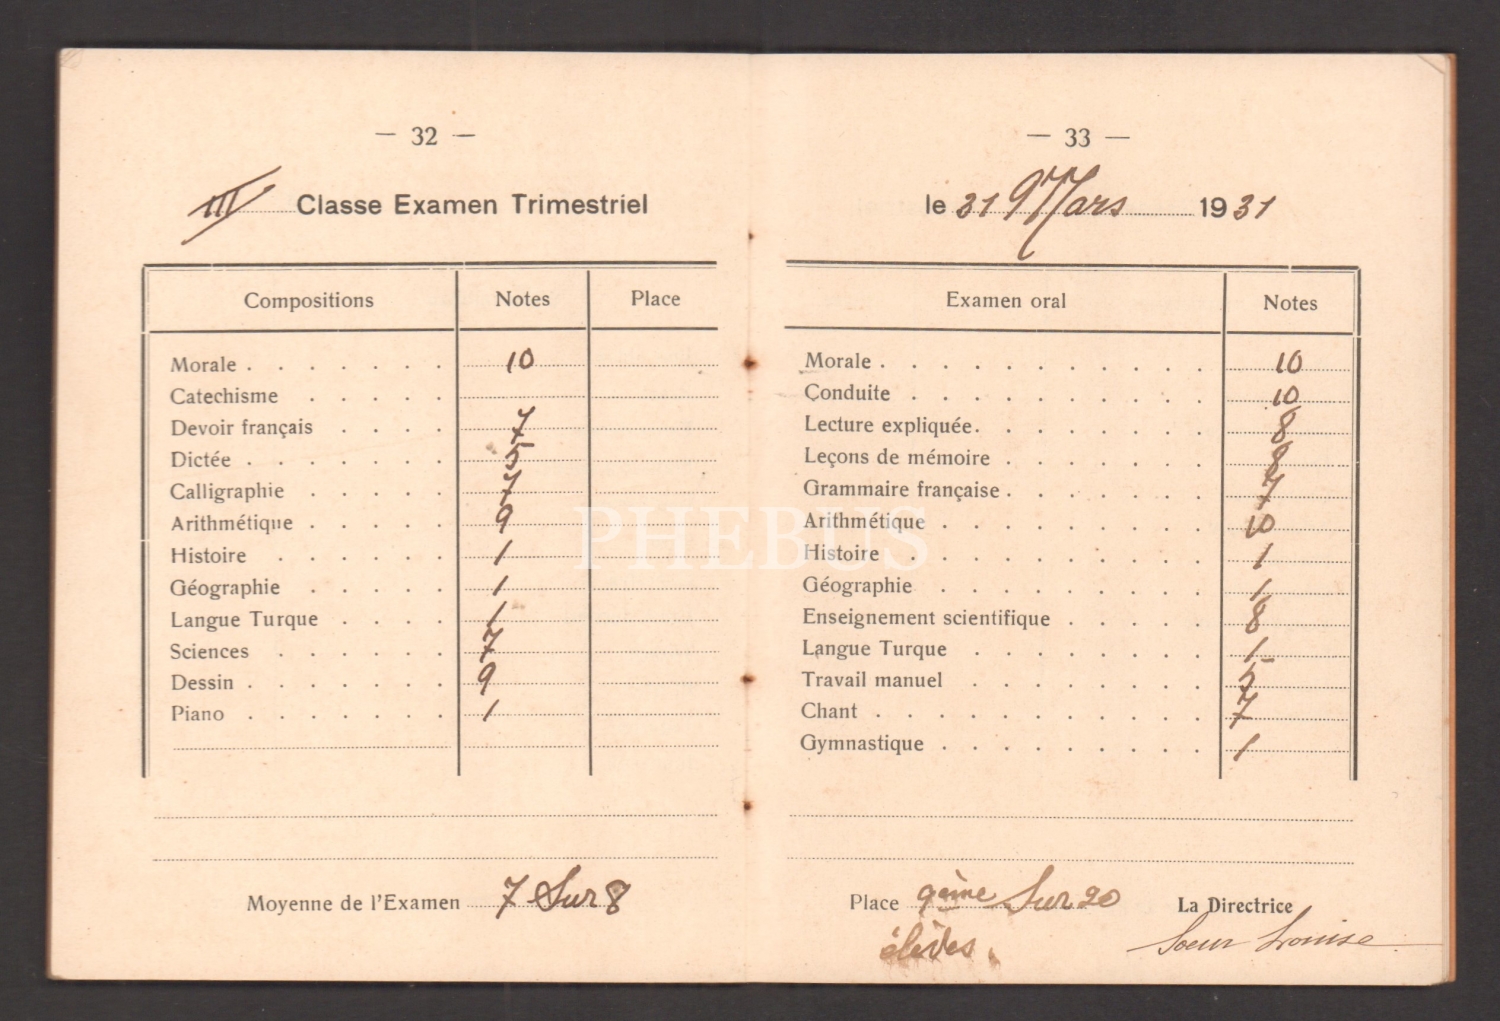 — 32 —
III Classe Examen Trimestriel
Compositions Notes Place
Morale 10
Catechisme
Devoir français 7
Dictée 5
Calligraphie 7
Arithmétique 9
Histoire 1
Géographie 1
Langue Turque 1
Sciences 7
Dessin 9
Piano 1
Moyenne de l'Examen 7 Sur 8
— 33 —
le 31 Mars 1931
Examen oral Notes
Morale 10
Conduite 10
Lecture expliquée 8
Leçons de mémoire 8
Grammaire française 7
Arithmétique 10
Histoire 1
Géographie 1
Enseignement scientifique 8
Langue Turque 1
Travail manuel 5
Chant 7
Gymnastique 1
Place 9ème Sur 20 La Directrice
élèves. Soeur Louise
PHEBUS